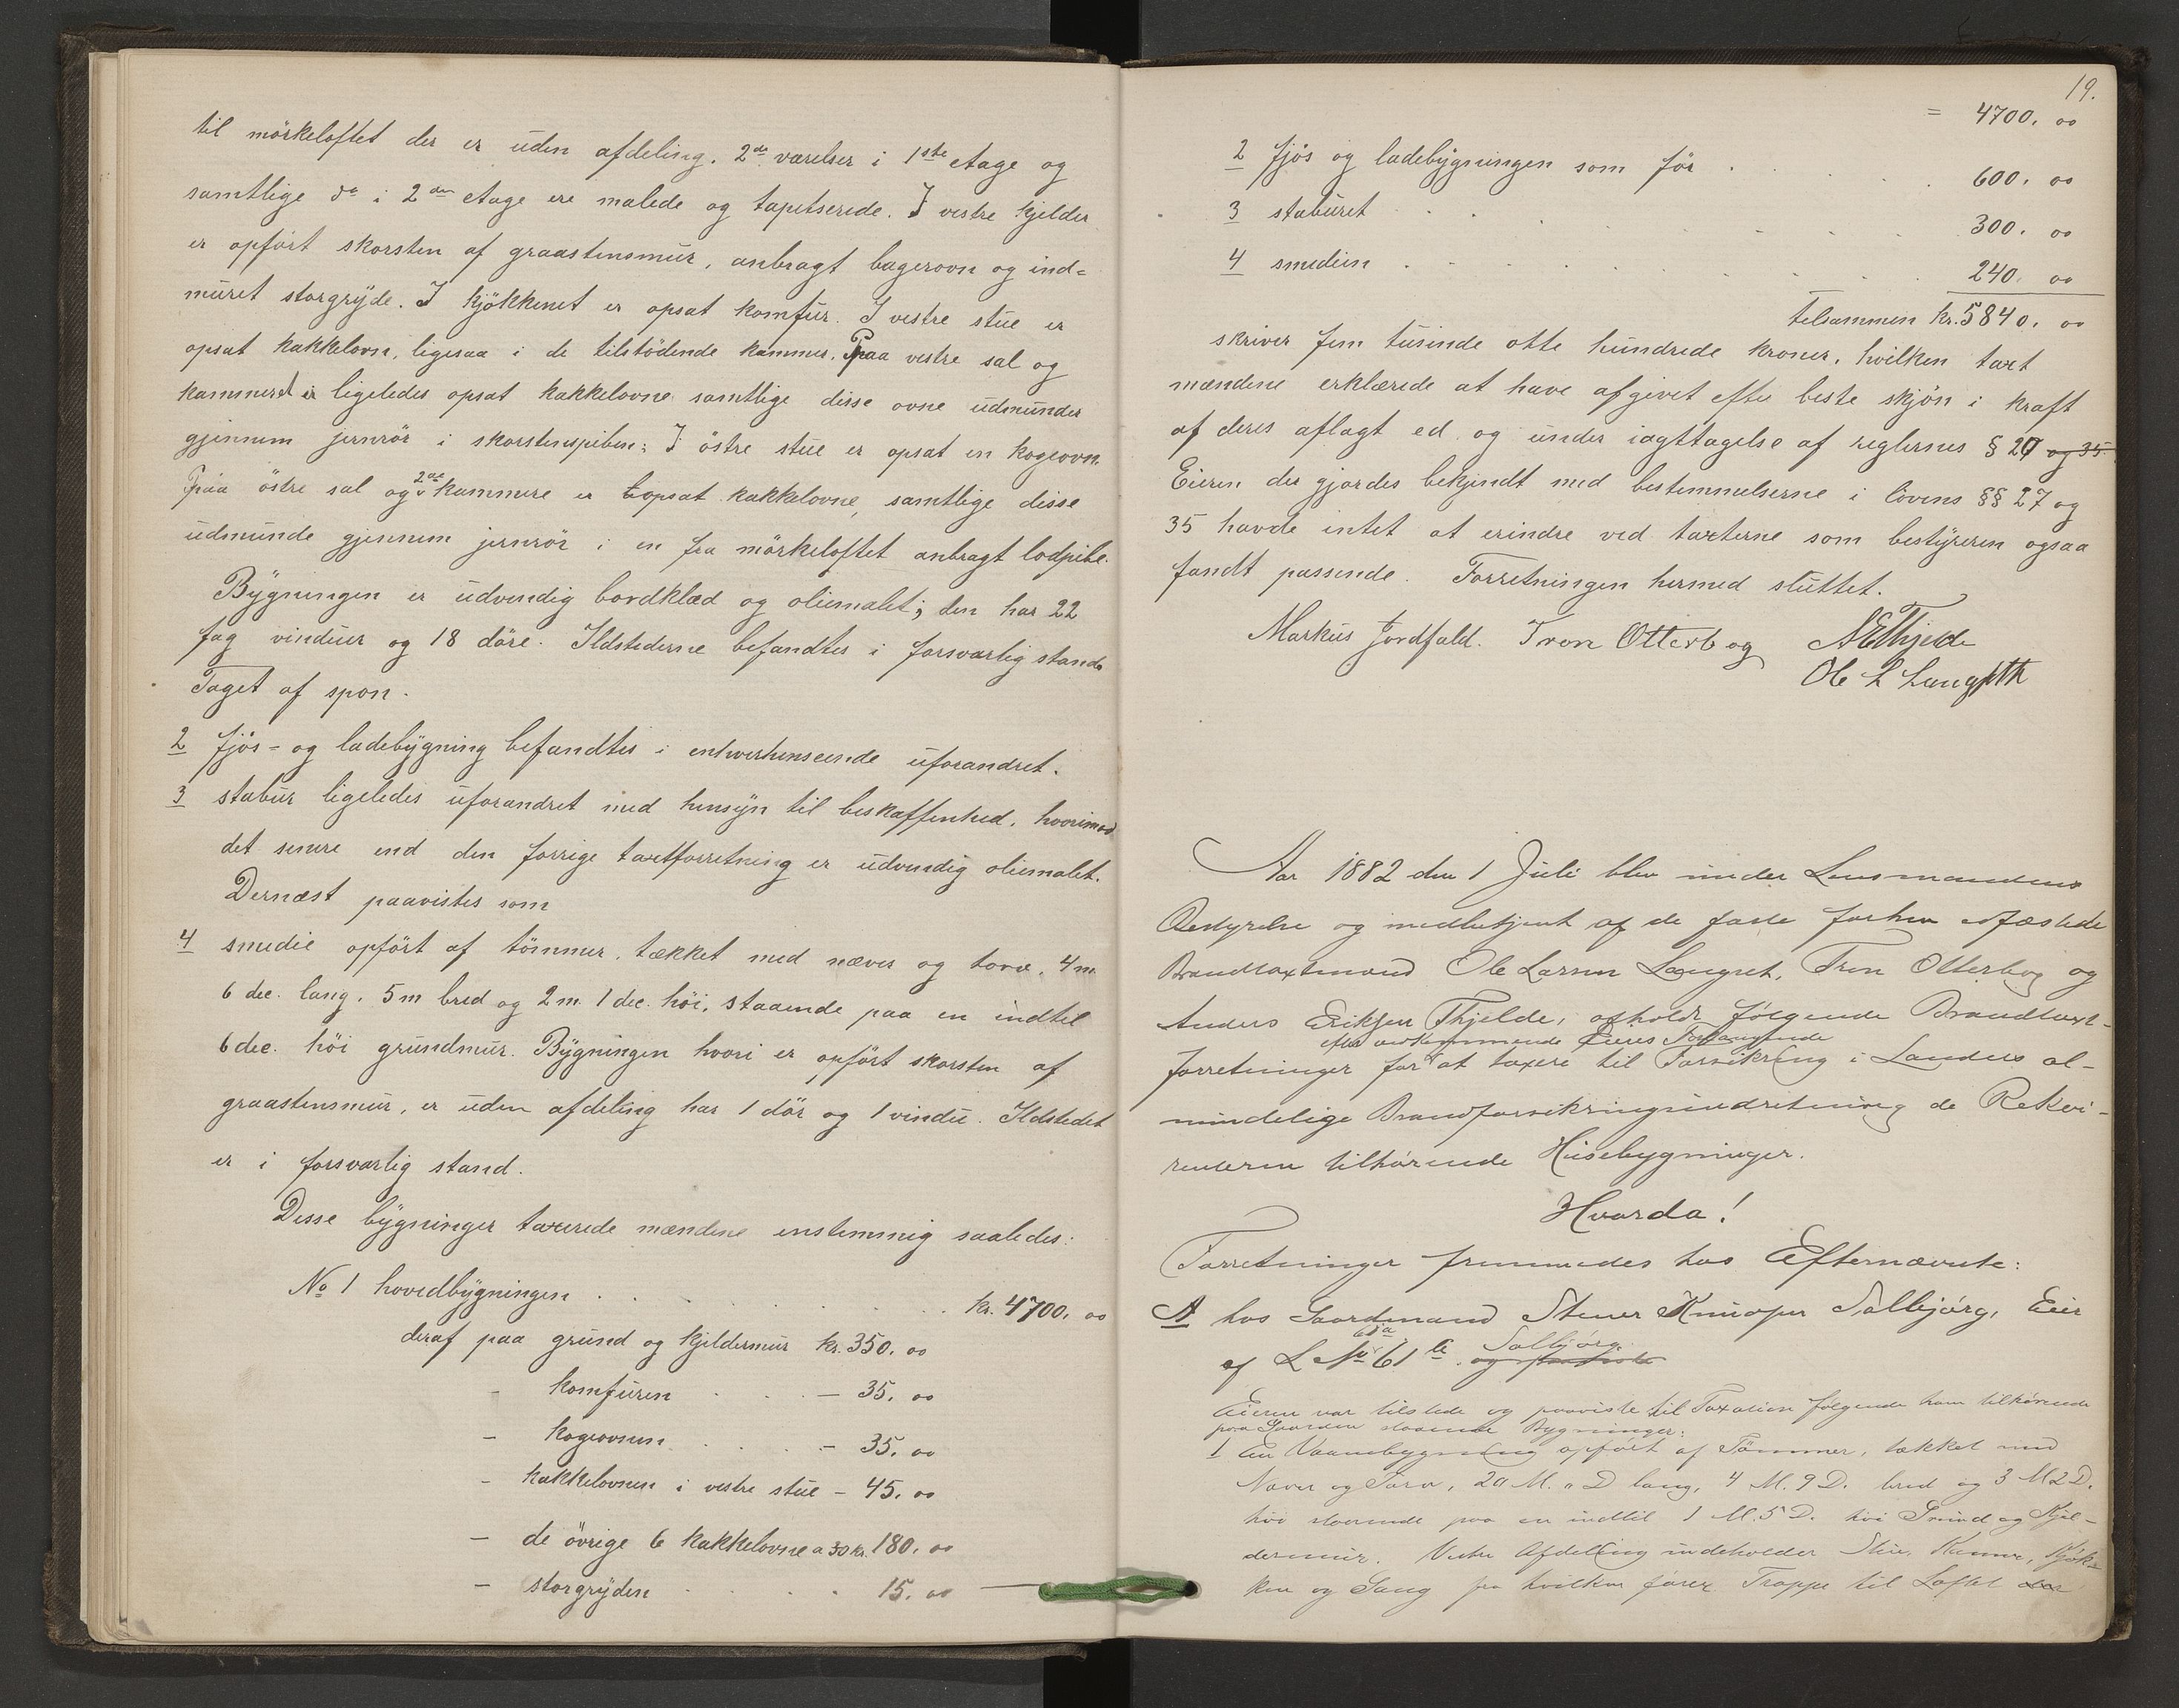 til mörkeloftet der er uden afdeling. 2de værelser i 1ste etage og
samtlige do i 2den etage ere malede og tapetserede. I vestre kjelder
er opført skorsten af graastensmur, anbragt bagerovn og ind=
muret storgryde. I kjökkenet er opsat komfur. I vestre stue er
opsat kakkelovn, ligesaa i de tilstödende kammer. Paa vestre sal og
kammerset er ligeledes opsat kakkelovne samtlige disse ovne udmunder
gjennem jernrör i skorstenspiben: I östre stue er opsat en kogeovn.
Paa östre sal og 2de kammere er opsat kakkelovne, samtlige disse
udmunde gjennem jernrör i en fra mörkeloftet anbragt lodpibe.
Bygningen er udvendig bordklæd og oliemalet; den har 22
fag vinduer og 18 döre. Ildstederne befandtes i forsvarlig stand.
Taget af spon.
2 fjös- og ladebygning befandtes i enhverhenseende uforandret.
3 stabur ligeledes uforandret med hensyn til beskaffenhed. hvorimod
det senere end den forrige taxtforretning er udvendig oliemalet.
Dernæst paavistes som
4 smedie opfört af tömmer, tækket med næver og torv. 4 m.
6 dec. lang, 5 m bred og 2 m. 1 dec. höi, staaende paa en indtil
6 dec. höi grundmur. Bygningen hvori er opfört skorsten af
graastensmur, er uden afdeling har 1 dör og 1 vindu. Ildstedet
er i forsvarlig stand.
Disse bygninger taxerede mændene enstemmig saaledes:
No 1 hovedbygningen . . . kr. 4700. 00
deraf paa grund og kjeldermur kr. 350. 00
- komfuren . . . - 35. 00
- kogeovnen . . . - 35. 00
- kakkelovnen i vestre stue - 45. 00
- de övrige 6 kakkelovne a 30 kr. 180. 00
- storgryden . . . 15. 00
19.
= 4700. 00
2 fjös og ladebygningen som för . . . 600. 00
3 staburet . . . 300. 00
4 smedien . . . 240. 00
tilsammen kr. 5840. 00
skriver fem tusinde otte hundrede kroner, hvilken taxt
mændene erklærede at have afgivet efter beste skjön i kraft
af deres aflagt ed og under iagttagelse af reglernes § 29 og 35.
Eieren der gjordes bekjendt med bestemmelserne i lovens §§ 27 og
35 havde intet at erindre ved taxterne som bestyreren ogsaa
fandt passende. Forretningen hermed sluttet.
Markus Jordfald. Tron Otterbog AEThjelde
Ole L Langseth
Aar 1882 den 1 Juli blev under Lensmandens
Bestyrelse og medbetjent af de faste forhen edfæstede
Brandtaxtmænd Ole Larsen Langset, Tron Otterbog og
Anders Eriksen Thjelde, afholdt følgende Brandtaxt-
efter vedkommende Eiers Forlangende
forretninger for at taxere til Forsikring i Landets al-
mindelige Brandforsikringsindretning de Rekvi-
renterne tilhørende Husebygninger.
Hvorda!
Forretninger fremmedes hos Efternævnte:
A hos Gaardmand Stener Knudsen Solbjørg, Eier
61a Solbjørg
af L No 61 b. og
Eieren var tilstede og paaviste til Taxation følgende ham tilhørende
paa Gaarden staaende Bygninger:
1 En Vaanebygning opført af Tømmer, tækket med
Næver og Torv, 20 M. " D lang, 4 M. 9 D. bred og 3 M 2 D.
høi staaende paa en indtil 1 M. 5 D. høi Grund og Kjel-
dermur. Vestre Afdeling indeholder Stue, Kammer, Kjøk-
ken og Gang fra hvilken fører Trappe til Loftet der